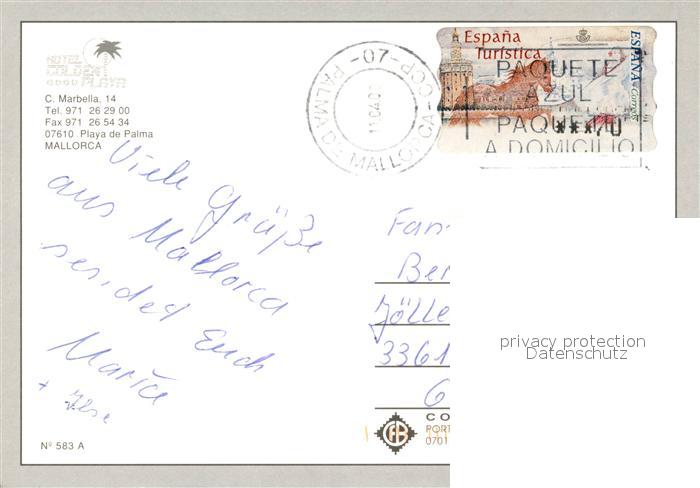 HOTEL
GOLDEN
PLAYA
C. Marbella, 14
Tel. 971 26 29 00
Fax 971 26 54 34
07610 Playa de Palma
MALLORCA
PALMA DE MALLORCA-CCP-07-
España
Turística
ESPAÑA
Correos
PAQUETE
AZUL
PAQUETE
A DOMICILIO
***70
Viele Grüße
aus Mallorca
sendet Euch
Marita
+ Ilse
Fam
Ber
Jölle
3361
G
privacy protection
Datenschutz
CO
PORT
0701
Nº 583 A